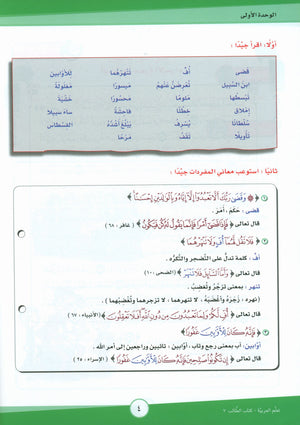 الوحدة الأولى
أوّلًا: اقرأ جيّدًا:
قضى أُفّ تنهرهما للأوّابين
ابن السّبيل تعرضنّ عنهم ميسورًا مغلولة
تبسطها ملومًا محسورًا خشية
إملاق خطئًا فاحشة ساء سبيلا
سلطانًا يسرف يبلغ أشدّه القسطاس
تأويلًا تقف مرحًا
ثانيًا: استوعب معاني المفردات جيّدًا:
١ ﴿ وَقَضَىٰ رَبُّكَ أَلَّا تَعْبُدُوا إِلَّا إِيَّاهُ وَبِالْوَالِدَيْنِ إِحْسَانًا ﴾
قضى: حَكَم، أمَر.
قال تعالى ﴿ فَإِذَا قَضَىٰ أَمْرًا فَإِنَّمَا يَقُولُ لَهُ كُن فَيَكُونُ ﴾ (غافر، ٦٨)
٢ ﴿ فَلَا تَقُل لَّهُمَا أُفٍّ وَلَا تَنْهَرْهُمَا ﴾
أُفّ: كلمة تدلّ على التّضجر والتّكرّه.
قال تعالى ﴿ وَأَمَّا السَّائِلَ فَلَا تَنْهَرْ ﴾ (الضحى، ١٠)
تنهر: بمعنى تزجُر وتُغضِب.
(نهره: زَجَرَهُ وأغضَبَهُ، لا تنهرهما: لا تزجرهما وتُغضِبهما)
قال تعالى ﴿ أُفٍّ لَّكُمْ وَلِمَا تَعْبُدُونَ مِن دُونِ اللَّهِ أَفَلَا تَعْقِلُونَ ﴾ (الأنبياء، ٦٧)
٣ ﴿ فَإِنَّهُ كَانَ لِلْأَوَّابِينَ غَفُورًا ﴾
أوّابين: آب بمعنى رجع وتاب، أوّابين: تائبين وراجعين إلى أمر الله.
قال تعالى ﴿ إِن تَكُونُوا صَالِحِينَ فَإِنَّهُ كَانَ لِلْأَوَّابِينَ غَفُورًا ﴾ (الإسراء، ٢٥)
٤
تعلّم العربيّة - كتاب الطّالب ٧